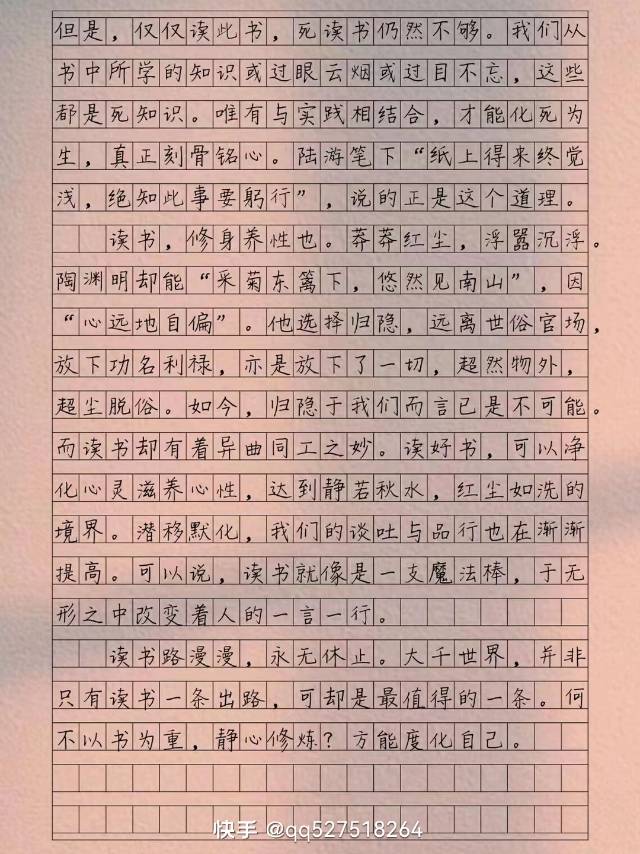 但是，仅仅读此书，死读书仍然不够。我们从
书中所学的知识或过眼云烟或过目不忘，这些
都是死知识。唯有与实践相结合，才能化死为
生，真正刻骨铭心。陆游笔下“纸上得来终觉
浅，绝知此事要躬行”，说的正是这个道理。
读书，修身养性也。莽莽红尘，浮嚣沉浮。
陶渊明却能“采菊东篱下，悠然见南山”，因
“心远地自偏”。他选择归隐，远离世俗官场，
放下功名利禄，亦是放下了一切，超然物外，
超尘脱俗。如今，归隐于我们而言已是不可能。
而读书却有着异曲同工之妙。读好书，可以净
化心灵滋养心性，达到静若秋水，红尘如洗的
境界。潜移默化，我们的谈吐与品行也在渐渐
提高。可以说，读书就像是一支魔法棒，于无
形之中改变着人的一言一行。
读书路漫漫，永无休止。大千世界，并非
只有读书一条出路，可却是最值得的一条。何
不以书为重，静心修炼？方能度化自己。
快手 @qq527518264